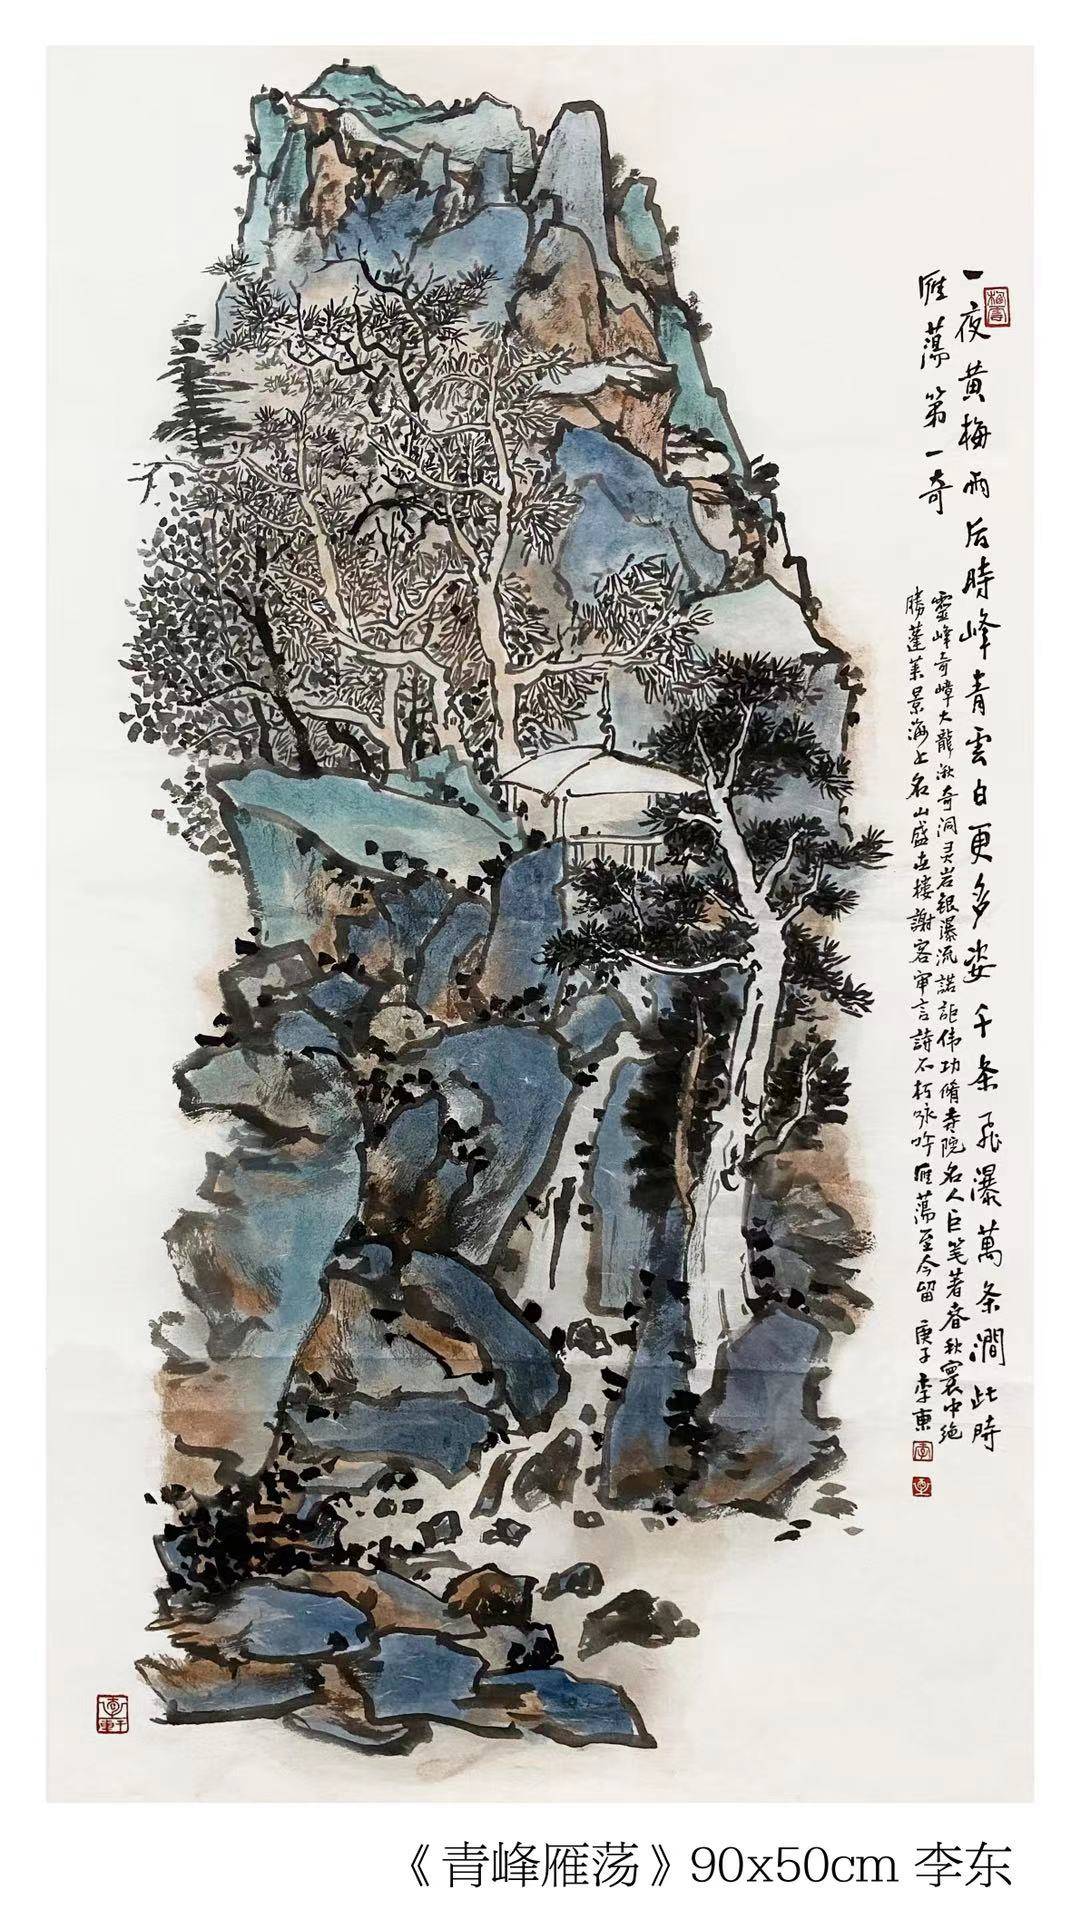 一夜黄梅雨后時峰青雲白更多姿千条飛瀑萬条澗此時
雁蕩第一奇
靈峰奇嶂大龍湫奇洞灵岩銀瀑流諾詎伟功脩寺院名人巨笔著春秋寰中绝
勝蓬莱景海上名山盛
謝客
言詩不朽咏吟雁蕩至今留 庚子 李東
《青峰雁荡》90x50cm 李东